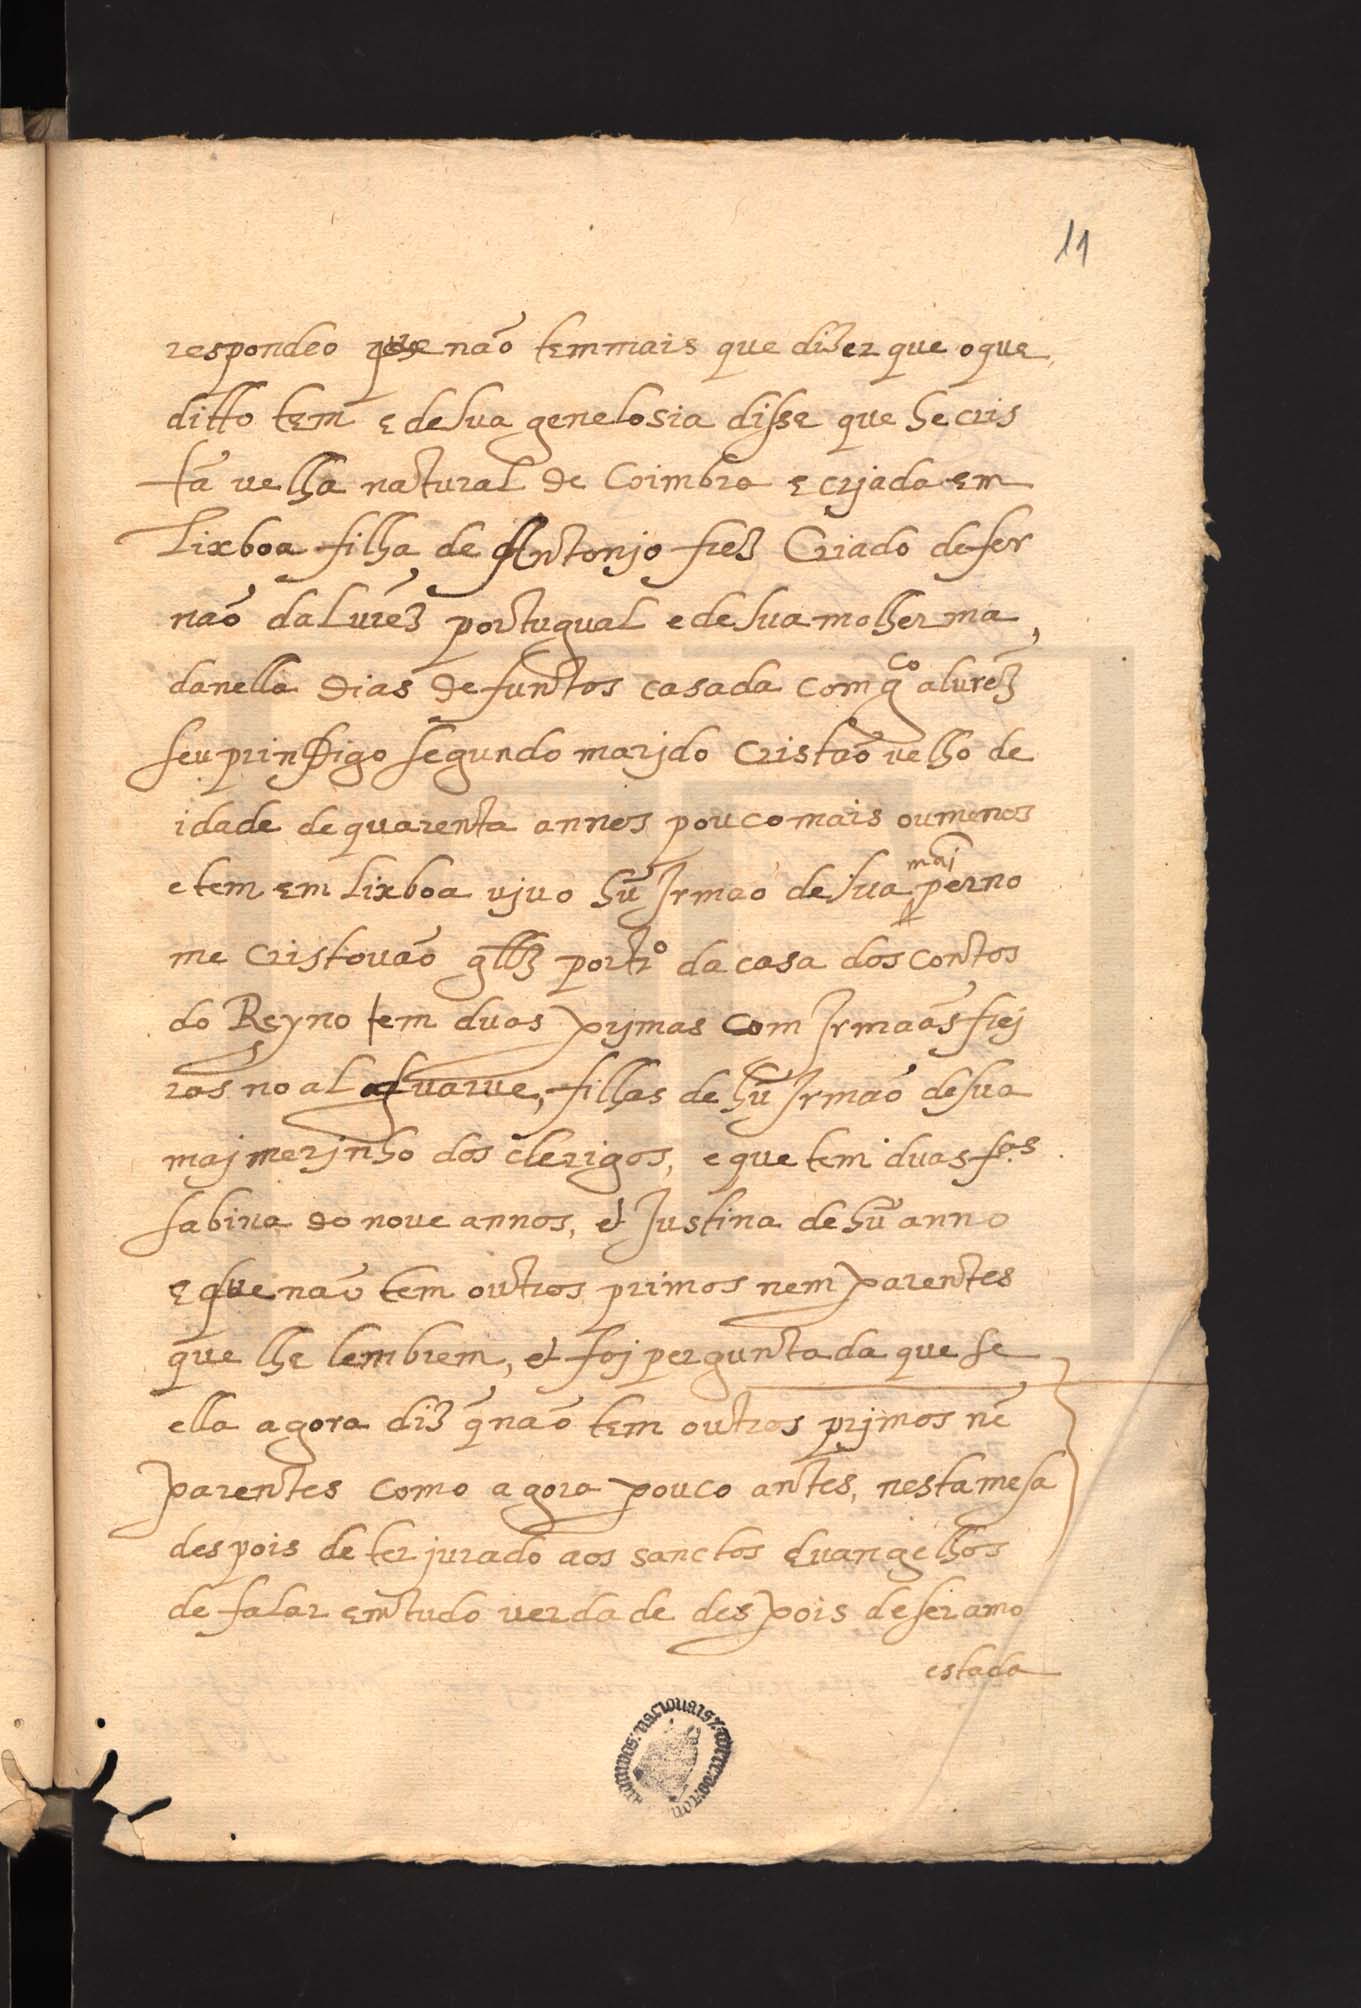 11
respondeo que não tem mais que dizer que o que
ditto tem e de sua genelosia disse que he cris
tã velha natural de Coimbra e crjada em
Lixboa filha de Antonjo frez Criado de fer
não dalurez portugual e de sua molher ma
danella dias defuntos casada com gco alurez
seu prindigo segundo marjdo cristão velho de
idade de quarenta annos pouco mais ou menos
e tem em Lixboa vjuo hũ Jrmao de sua maj per no
me cristouão glz portro da casa dos contos
do Reyno tem duas prjmas com Jrmaãs frej
ras no al guarue, filhas de hũ Jrmão de sua
maj merjnho dos clerigos, e que tem duas fas
sabina de noue annos, et Justina de hũ anno
e que não tem outros primos nem parentes
que lhe lembrem, et foj perguntada que se
ella agora diz q̃ não tem outros prjmos nẽ
parentes como agora pouco antes, nesta mesa
despois de ter jurado aos sanctos Evangelhos
de falar em tudo verdade despois de ser amo
estada